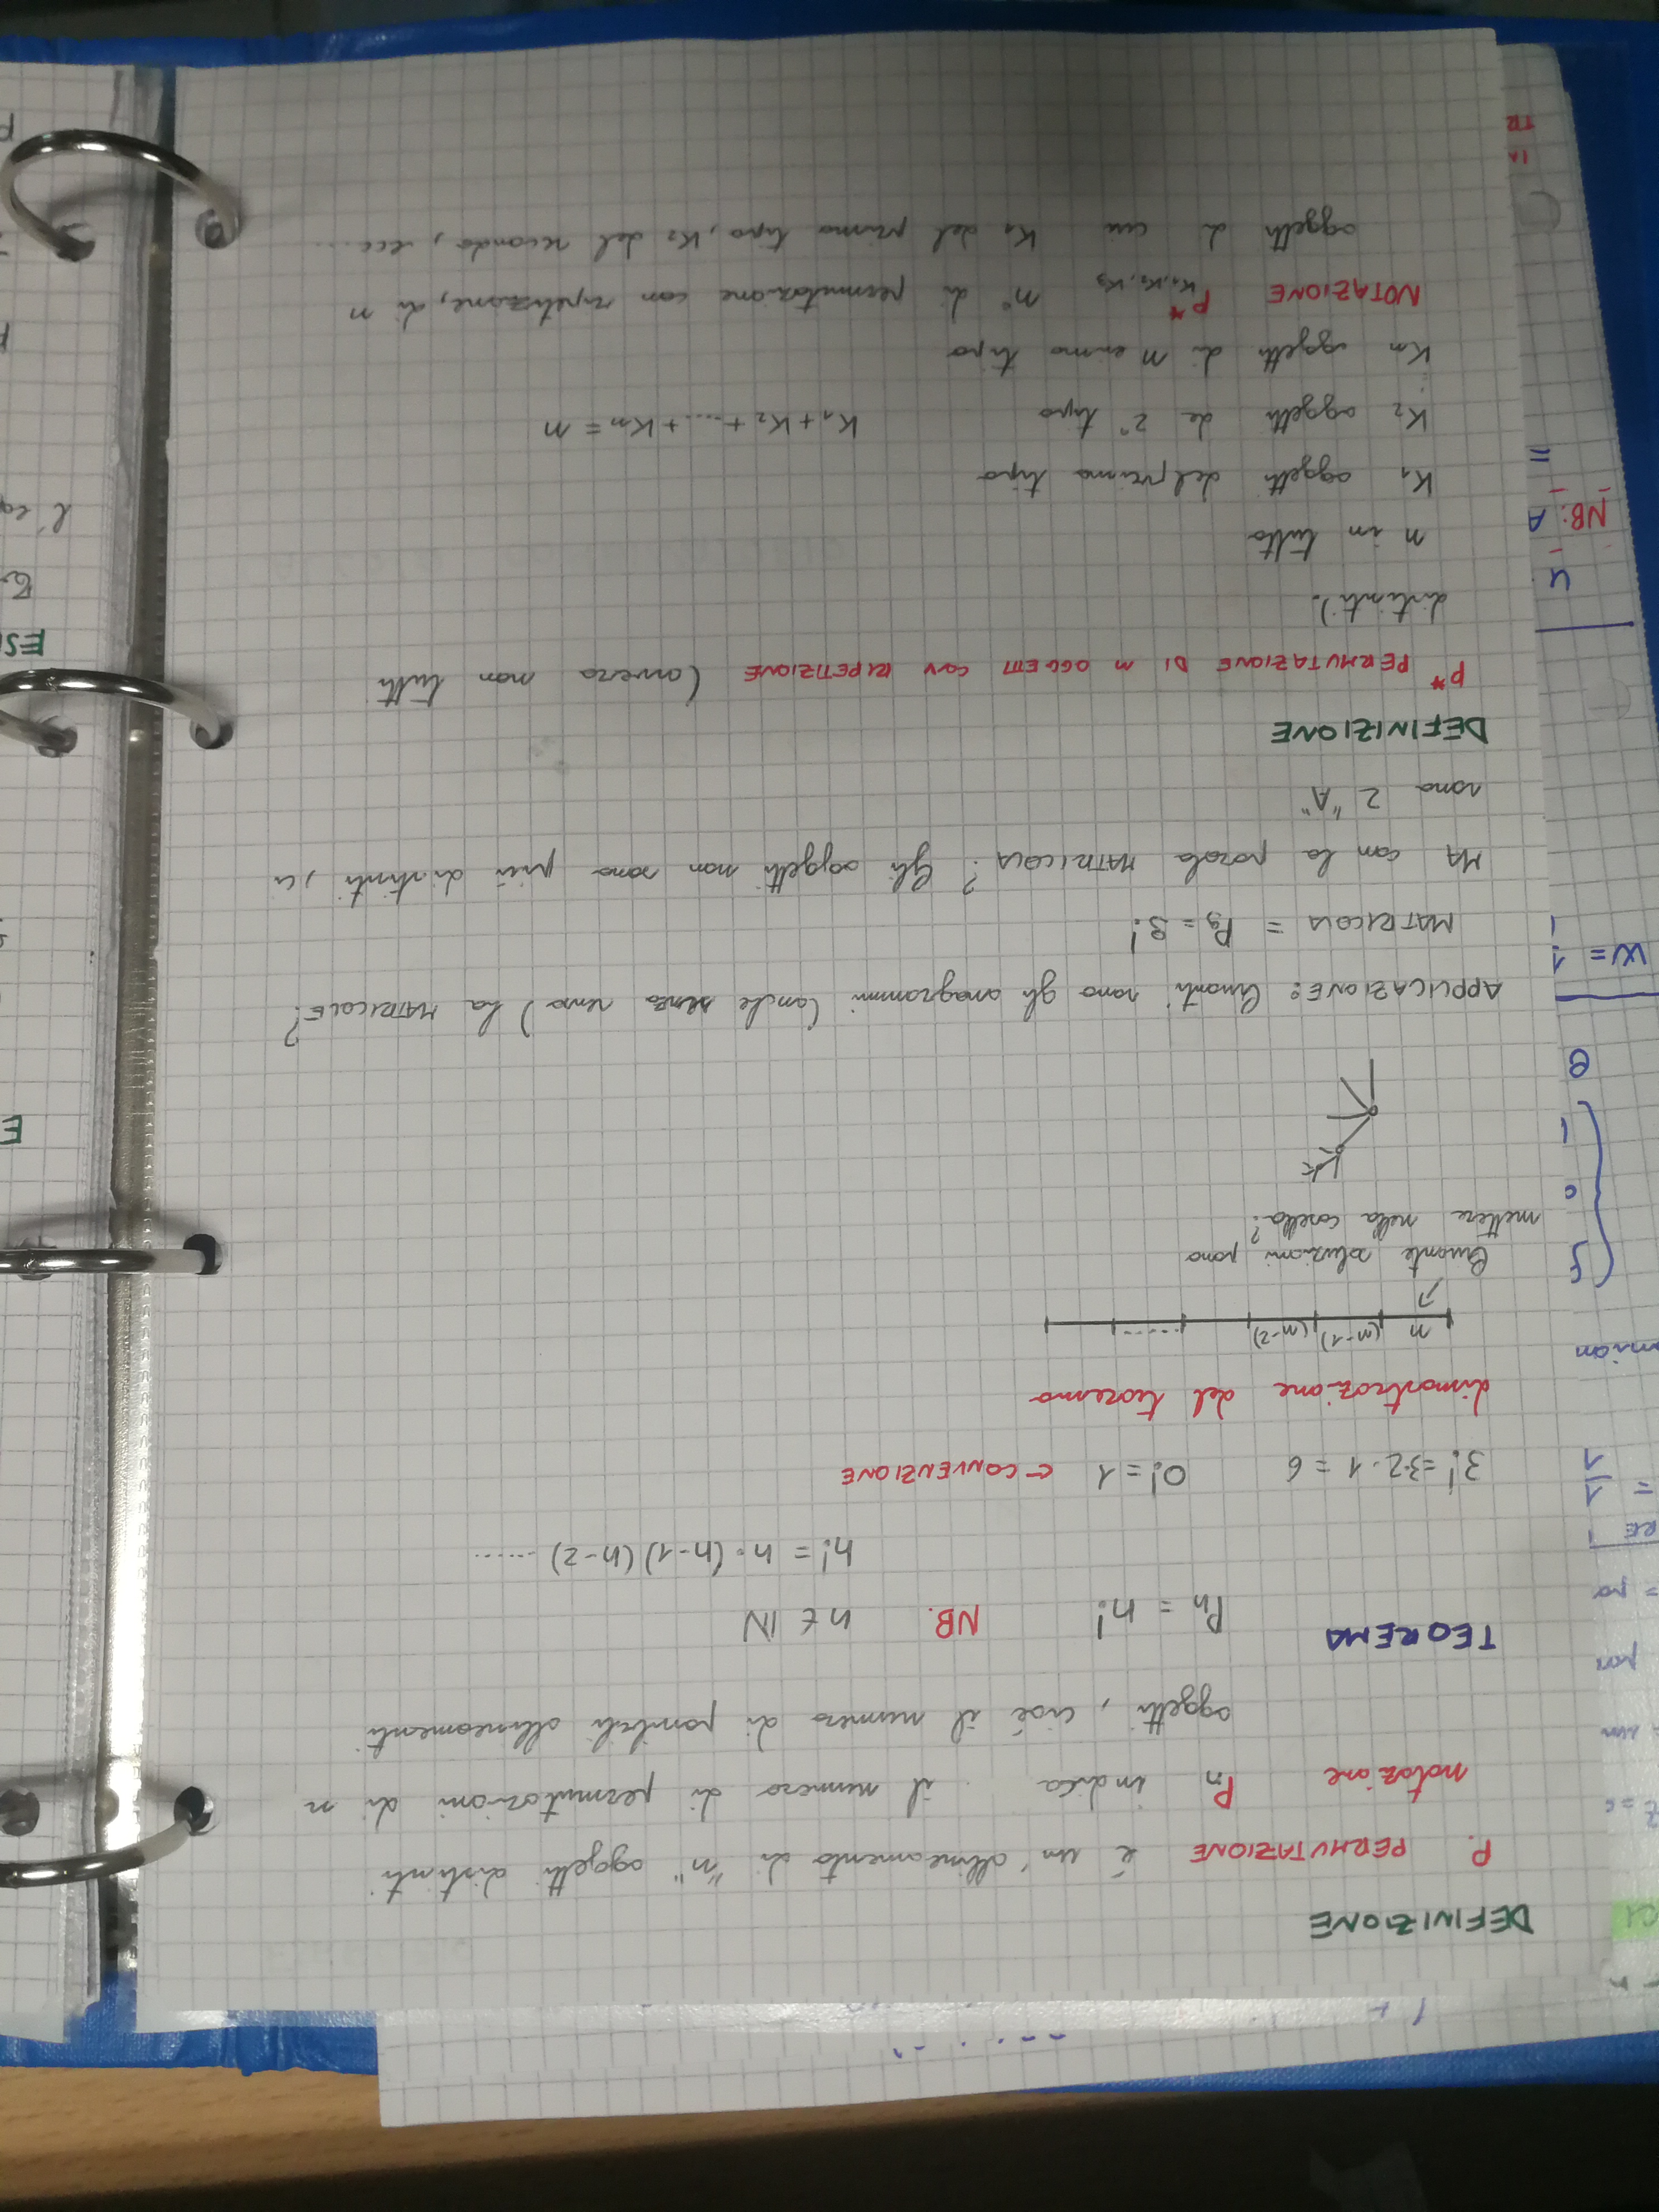 DEFINIZIONE
P. PERMUTAZIONE é un' allineamento di "n" oggetti distinti
notazione Pn indica il numero di permutazioni di n
oggetti, cioé il numero di possibili allineamenti
TEOREMA
Pn = n! NB. n ∈ IN
n! = n · (n-1) (n-2) ......
3! = 3·2·1 = 6 0! = 1 ← CONVENZIONE
dimostrazione del teorema
n (n-1) (n-2) .....
Quante soluzioni posso
mettere nella casella?
APPLICAZIONE: Quanti sono gli anagrammi (anche senza senso) ha MATRICOLE?
MATRICOLA = P9 = 9!
MA con la parola MATRICOLA? Gli oggetti non sono più distinti, ci
sono 2 "A"
DEFINIZIONE
P* PERMUTAZIONE DI n OGGETTI CON RIPETIZIONE (ovvero non tutti
distinti).
n in tutto
K1 oggetti del primo tipo
K2 oggetti de 2° tipo K1 + K2 + .... + Kn = n
Kn oggetti di n esimo tipo
NOTAZIONE P* K1, K2, K3 n° di permutazione con ripetizione, di n
oggetti di cui K1 del primo tipo, K2 del secondo, ecc...
RE
= 1
1
W = 1
u
NB: A
=